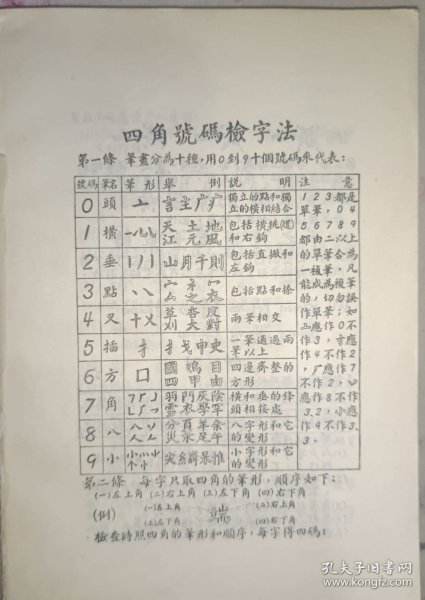 四角號碼檢字法
第一條 筆畫分為十種,用0到9十個號碼來代表:
號碼 筆名 筆形 舉例 說明 注意
0 頭 亠 言主广疒 獨立的點和獨立的橫相結合
1 橫 一 天土地江元風 包括橫挑(趯)和右鈎
2 垂 丨 山月千則 包括直撇和左鈎
3 點 丶 宀衤冖厶之衣 包括點和捺
4 叉 十乂 草杏皮刈大對 兩筆相交
5 插 扌 扌戈申史 一筆通過兩筆以上
6 方 口 國鳴目四甲由 四邊齊整的方形
7 角 羽門灰陰雪衣學罕 橫和垂的鋒頭相接處
8 八 八丷人 分頁羊余災汆足午 八字形和它的變形
9 小 小 尖糸粦惟 小字形和它的變形
1 2 3 都是
單筆,0 4
5 6 7 8 9
都由二以上
的單筆合為
一複筆。凡
能成為複筆
的,切勿誤
作單筆;如
亠應作0不
作3,寸應
作4不作
作2,
不作3.2,小應
作9不作3.
3.
第二條 每字只取四角的筆形,順序如下:
(一)左上角 (二)右上角 (三)左下角 (四)右下角
(例) (一)左上角 (二)右上角
端
(三)左下角 (四)右下角
檢查時照四角的筆形和順序,每字得四碼:
孔夫子旧书网
www.kongfz.com